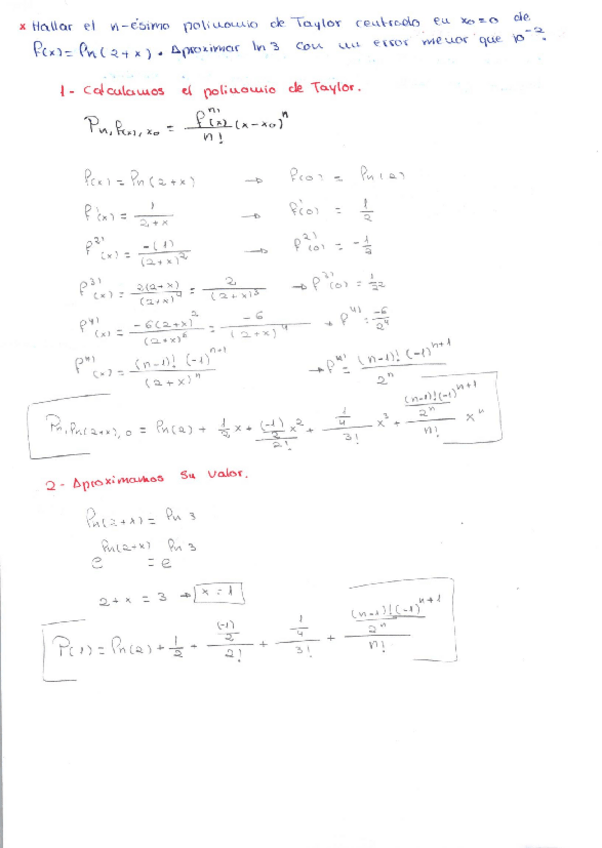 x Hallar el n-ésimo polinomio de Taylor centrado en x₀=0 de
f(x) = ln(2+x). Aproximar ln 3 con un error menor que 10⁻².
1- Calculamos el polinomio de Taylor.
P n, f(x), x₀ = f^n)(x)/n! (x-x₀)^n
f(x) = ln(2+x) → f(0) = ln(2)
f'(x) = 1/(2+x) → f'(0) = 1/2
f^2)(x) = -(1)/(2+x)² → f^2)(0) = -1/2
f^3)(x) = 2(2+x)/(2+x)⁴ = 2/(2+x)³ → f^3)(0) =
f^4)(x) = -6(2+x)²/(2+x)⁶ = -6/(2+x)⁴ → f^4) = -6/2⁴
f^n)(x) = (n-1)! (-1)^n+1/(2+x)^n → f^n) = (n-1)! (-1)^n+1/2^n
P n, ln(2+x), 0 = ln(2) + 1/2 x + ((-1)/2)/2! x² + (1/4)/3! x³ + ((n-1)! (-1)^n+1/2^n)/n! x^n
2- Aproximamos su valor.
ln(2+x) = ln 3
e^ln(2+x) = e^ln 3
2+x = 3 → x = 1
P(1) = ln(2) + 1/2 + ((-1)/2)/2! + (1/4)/3! + ((n-1)! (-1)^n+1/2^n)/n!